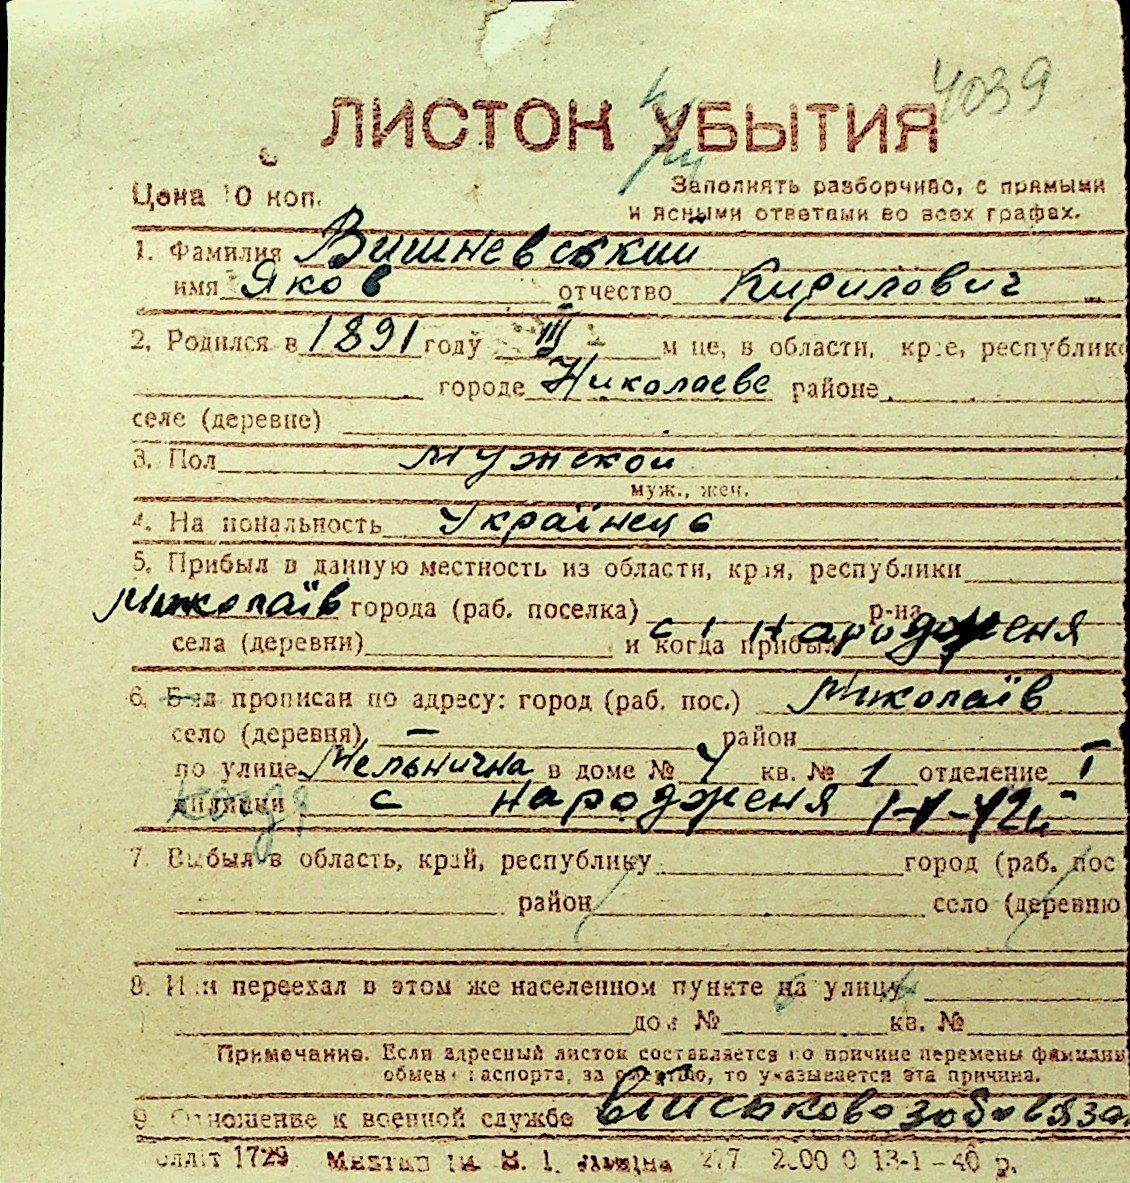 4039
ЛИСТОК УБЫТИЯ
Цена 10 коп.
Заполнять разборчиво, с прямыми
и ясными ответами во всех графах.
1. Фамилия Вишневський
имя Яков отчество Кирилович
2. Родился в 1891 году III м це, в области, крае, республике
городе Николаеве районе
селе (деревне)
3. Пол мужской
муж., жен.
4. На иональность Українець
5. Прибыл в данную местность из области, края, республики
Миколаїв города (раб. поселка) р-на
села (деревни) и когда прибыл с народженя
6. Был прописан по адресу: город (раб. пос.) Миколаїв
село (деревня) – район
по улице Мельнична в доме № 7 кв. № 1 отделение I
когда с народженя
7. Выбыл в область, край, республику город (раб. пос
район село (деревню
8. Или переехал в этом же населенном пункте на улицу
дом № кв. №
Примечание. Если адресный листок составляется по причине перемены фамилии
обмен паспорта, за смертью, то указывается эта причина.
9. Отношение к военной службе військовозобовяза
1729 13-1-40 р.